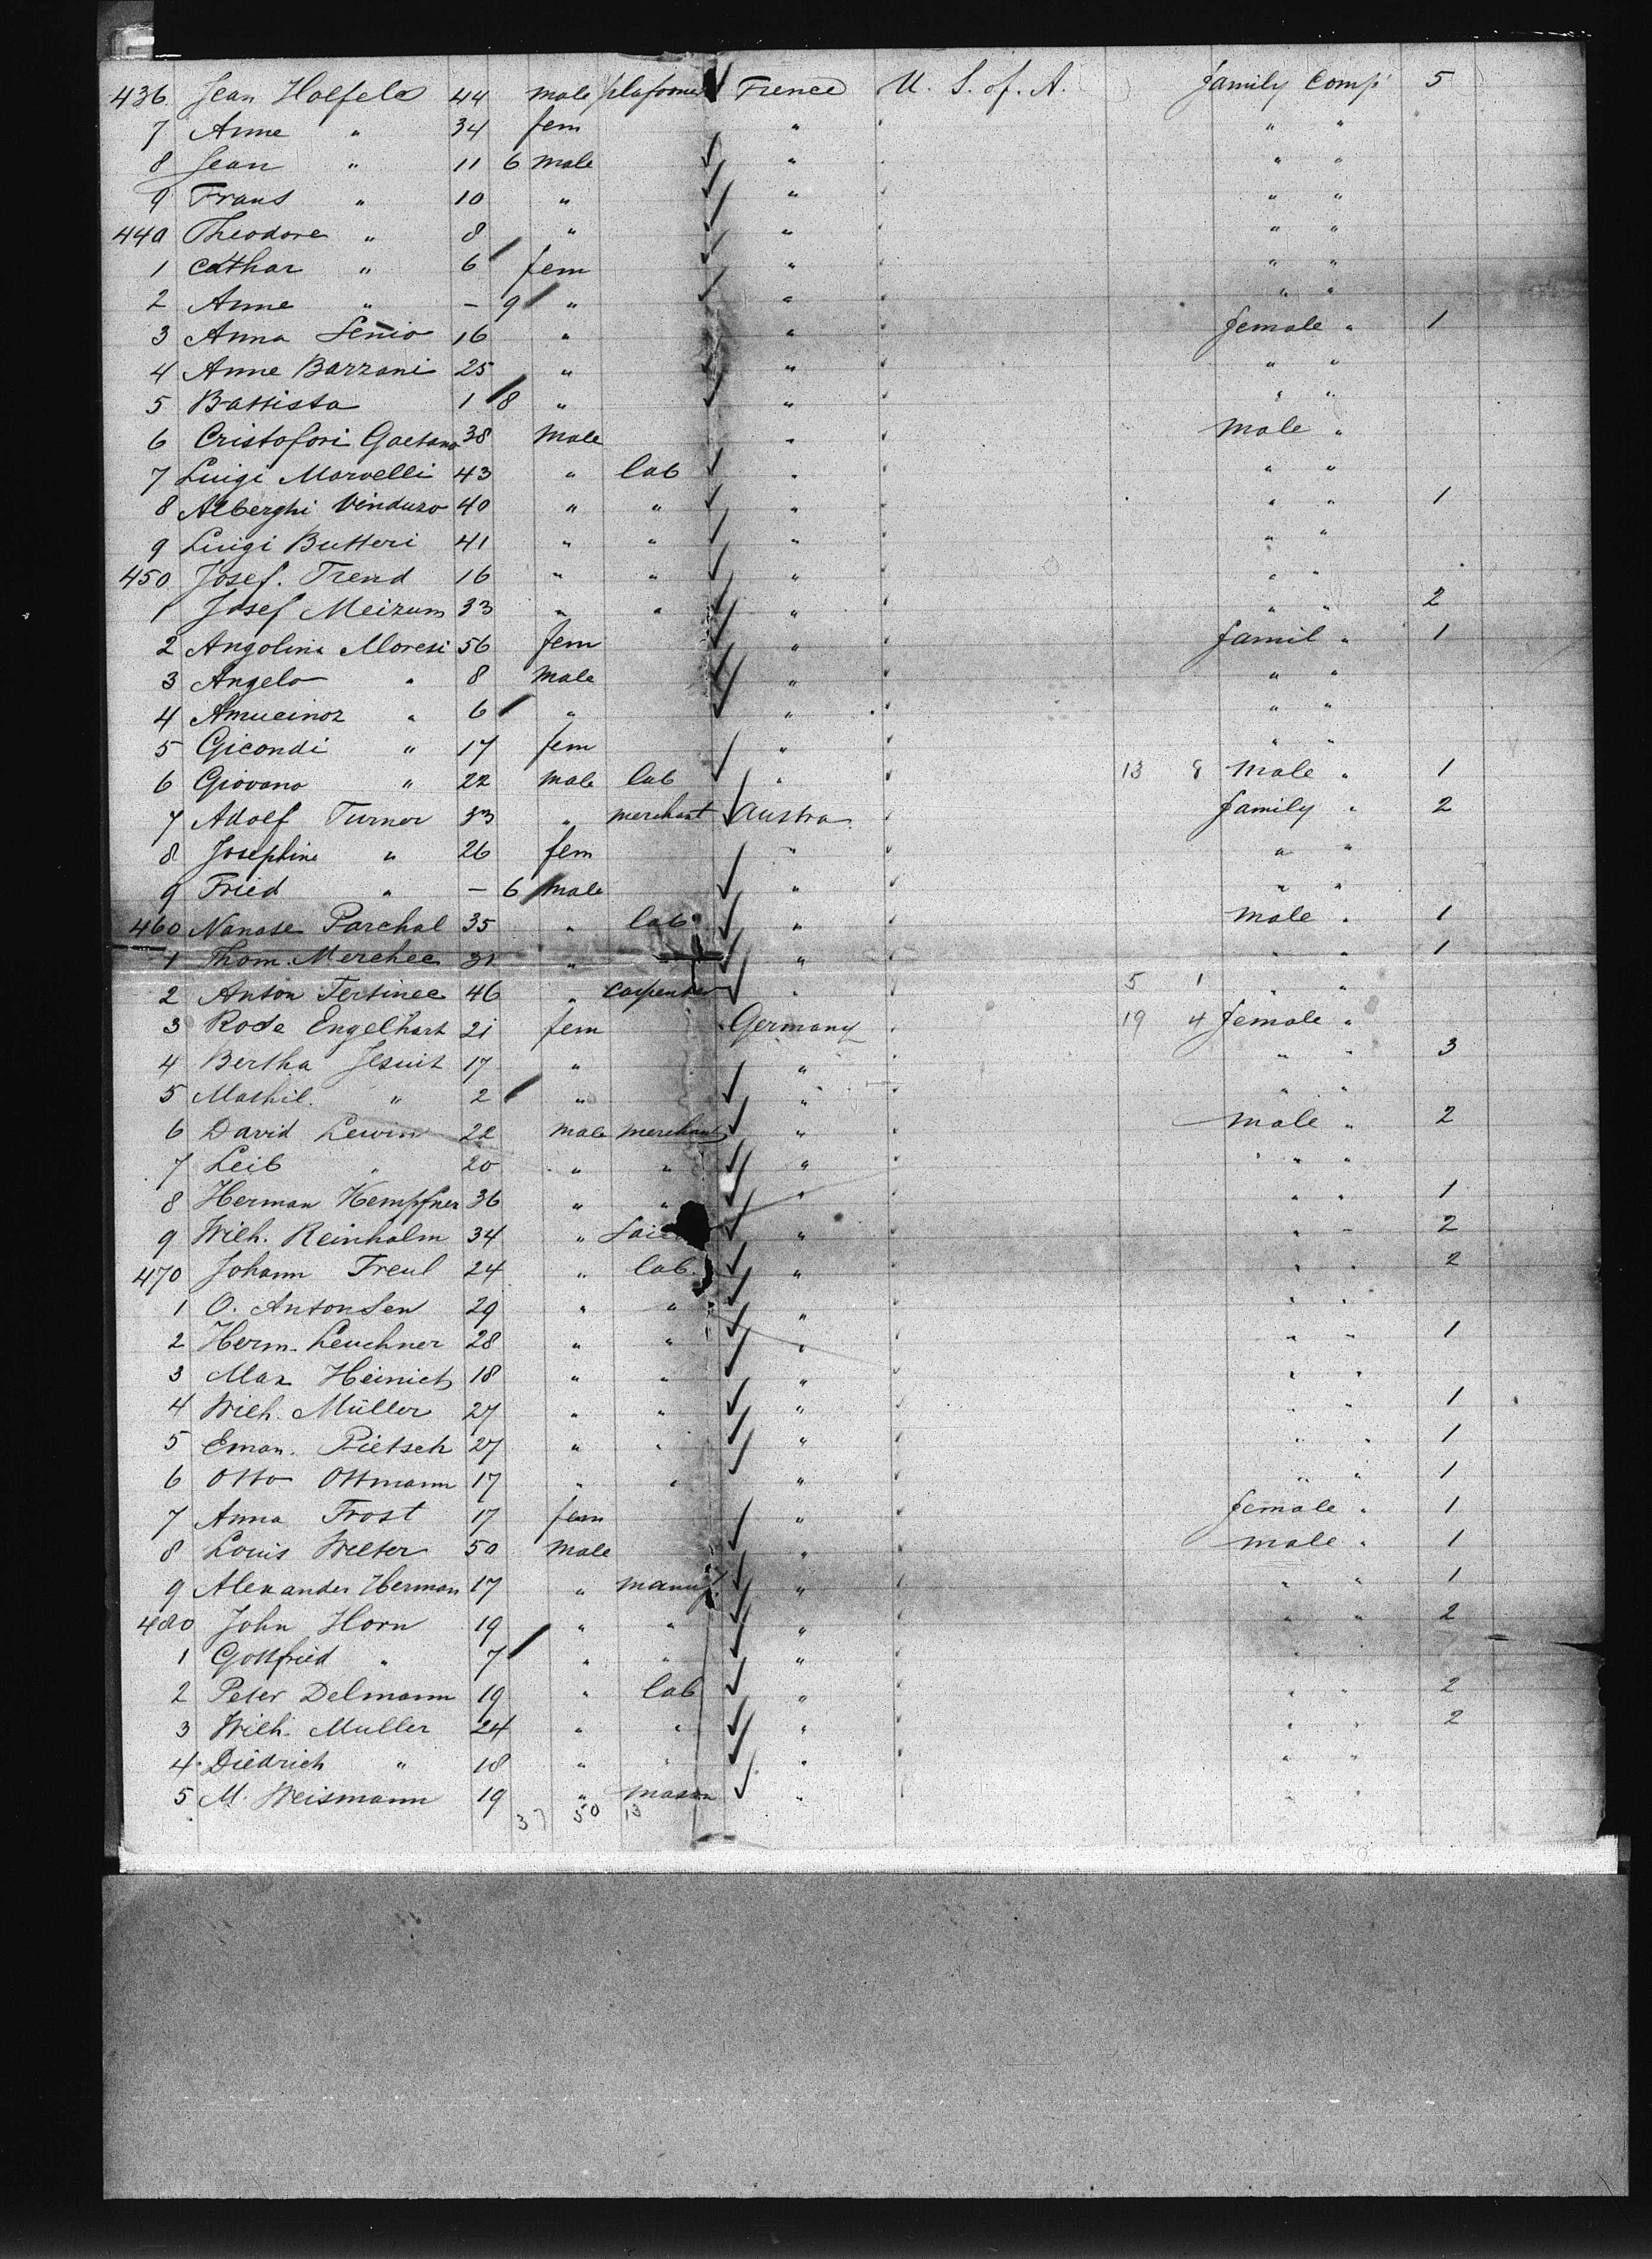 436 Jean Holfels 44 male France U. S. of. A. family Comp 5
7 Anne " 34 fem " " "
8 Jean " 11 6 male " " "
9 Frans " 10 " " " "
440 Theodore " 8 " " " "
1 Cathar " 6 fem " " "
2 Anne " – 9 " " " "
3 Anna Senio 16 " " female " 1
4 Anne Barzani 25 " " " "
5 Battista 1 8 " " " "
6 Cristofori Gaetano 38 male " male "
7 Luigi Marvelli 43 " lab " " "
8 Alberghi Vinduzo 40 " " " " " 1
9 Luigi Butteri 41 " " " " "
450 Josef. Trend 16 " " " " "
1 Josef Meizum 33 " " " " " 2
2 Angolina Moresi 56 fem " famil " 1
3 Angelo " 8 male " " "
4 Amucinoz " 6 " " " "
5 Gicondi " 17 fem " " "
6 Giovano " 22 male lab " 13 8 male " 1
7 Adolf Turner 33 " merchant Austra family " 2
8 Josephine " 26 fem " " "
9 Fried " – 6 male " " "
460 Nanase Parchal 35 " lab " male " 1
1 Thom. Merchec 31 " " " " 1
2 Anton Tertinec 46 " carpenter " 5 1 " "
3 Rode Engelhart 21 fem Germany 19 4 female "
4 Bertha Jesuit 17 " " " " 3
5 Mathil. " 2 " " " "
6 David Lewin 22 male merchant " male " 2
7 Leib " 20 " " " " "
8 Herman Kempfner 36 " " " " " 1
9 Wilh. Reinholm 34 " " " " 2
470 Johann Freul 24 " lab. " " " 2
1 O. Antonsen 29 " " " " "
2 Herm. Leuchner 28 " " " " " 1
3 Max Heinich 18 " " " " "
4 Wilh. Müller 27 " " " " " 1
5 Eman. Pietsch 27 " " " " " 1
6 Otto Ottmann 17 " " " " " 1
7 Anna Frost 17 fem " female " 1
8 Louis Welter 50 male " male " 1
9 Alexander Herman 17 " manuf. " " " 1
480 John Horn 19 " " " " " 2
1 Gottfried " 7 " " " "
2 Peter Delmann 19 " lab " " " 2
3 Wilh. Muller 24 " " " " " 2
4 Diedrich " 18 " " " " "
5 M. Weismann 19 " mason " " "
37 50 13